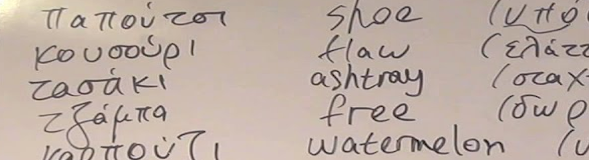 παπούτσι shoe (υπό
κουσούρι flaw (ελάττ
τασάκι ashtray (σταχ
τζάμπα free (δωρ
καρπούζι watermelon (υ